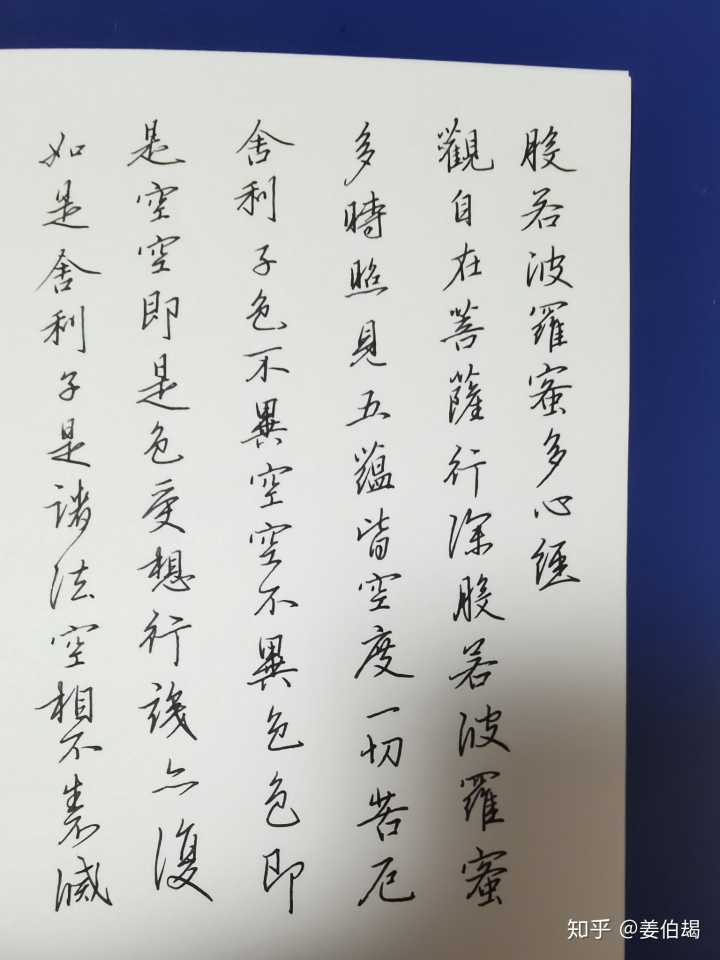 般若波羅蜜多心經
觀自在菩薩行深般若波羅蜜
多時照見五蘊皆空度一切苦厄
舍利子色不異空空不異色色即
是空空即是色受想行識亦復
如是舍利子是諸法空相不生不滅
知乎 @姜伯竭